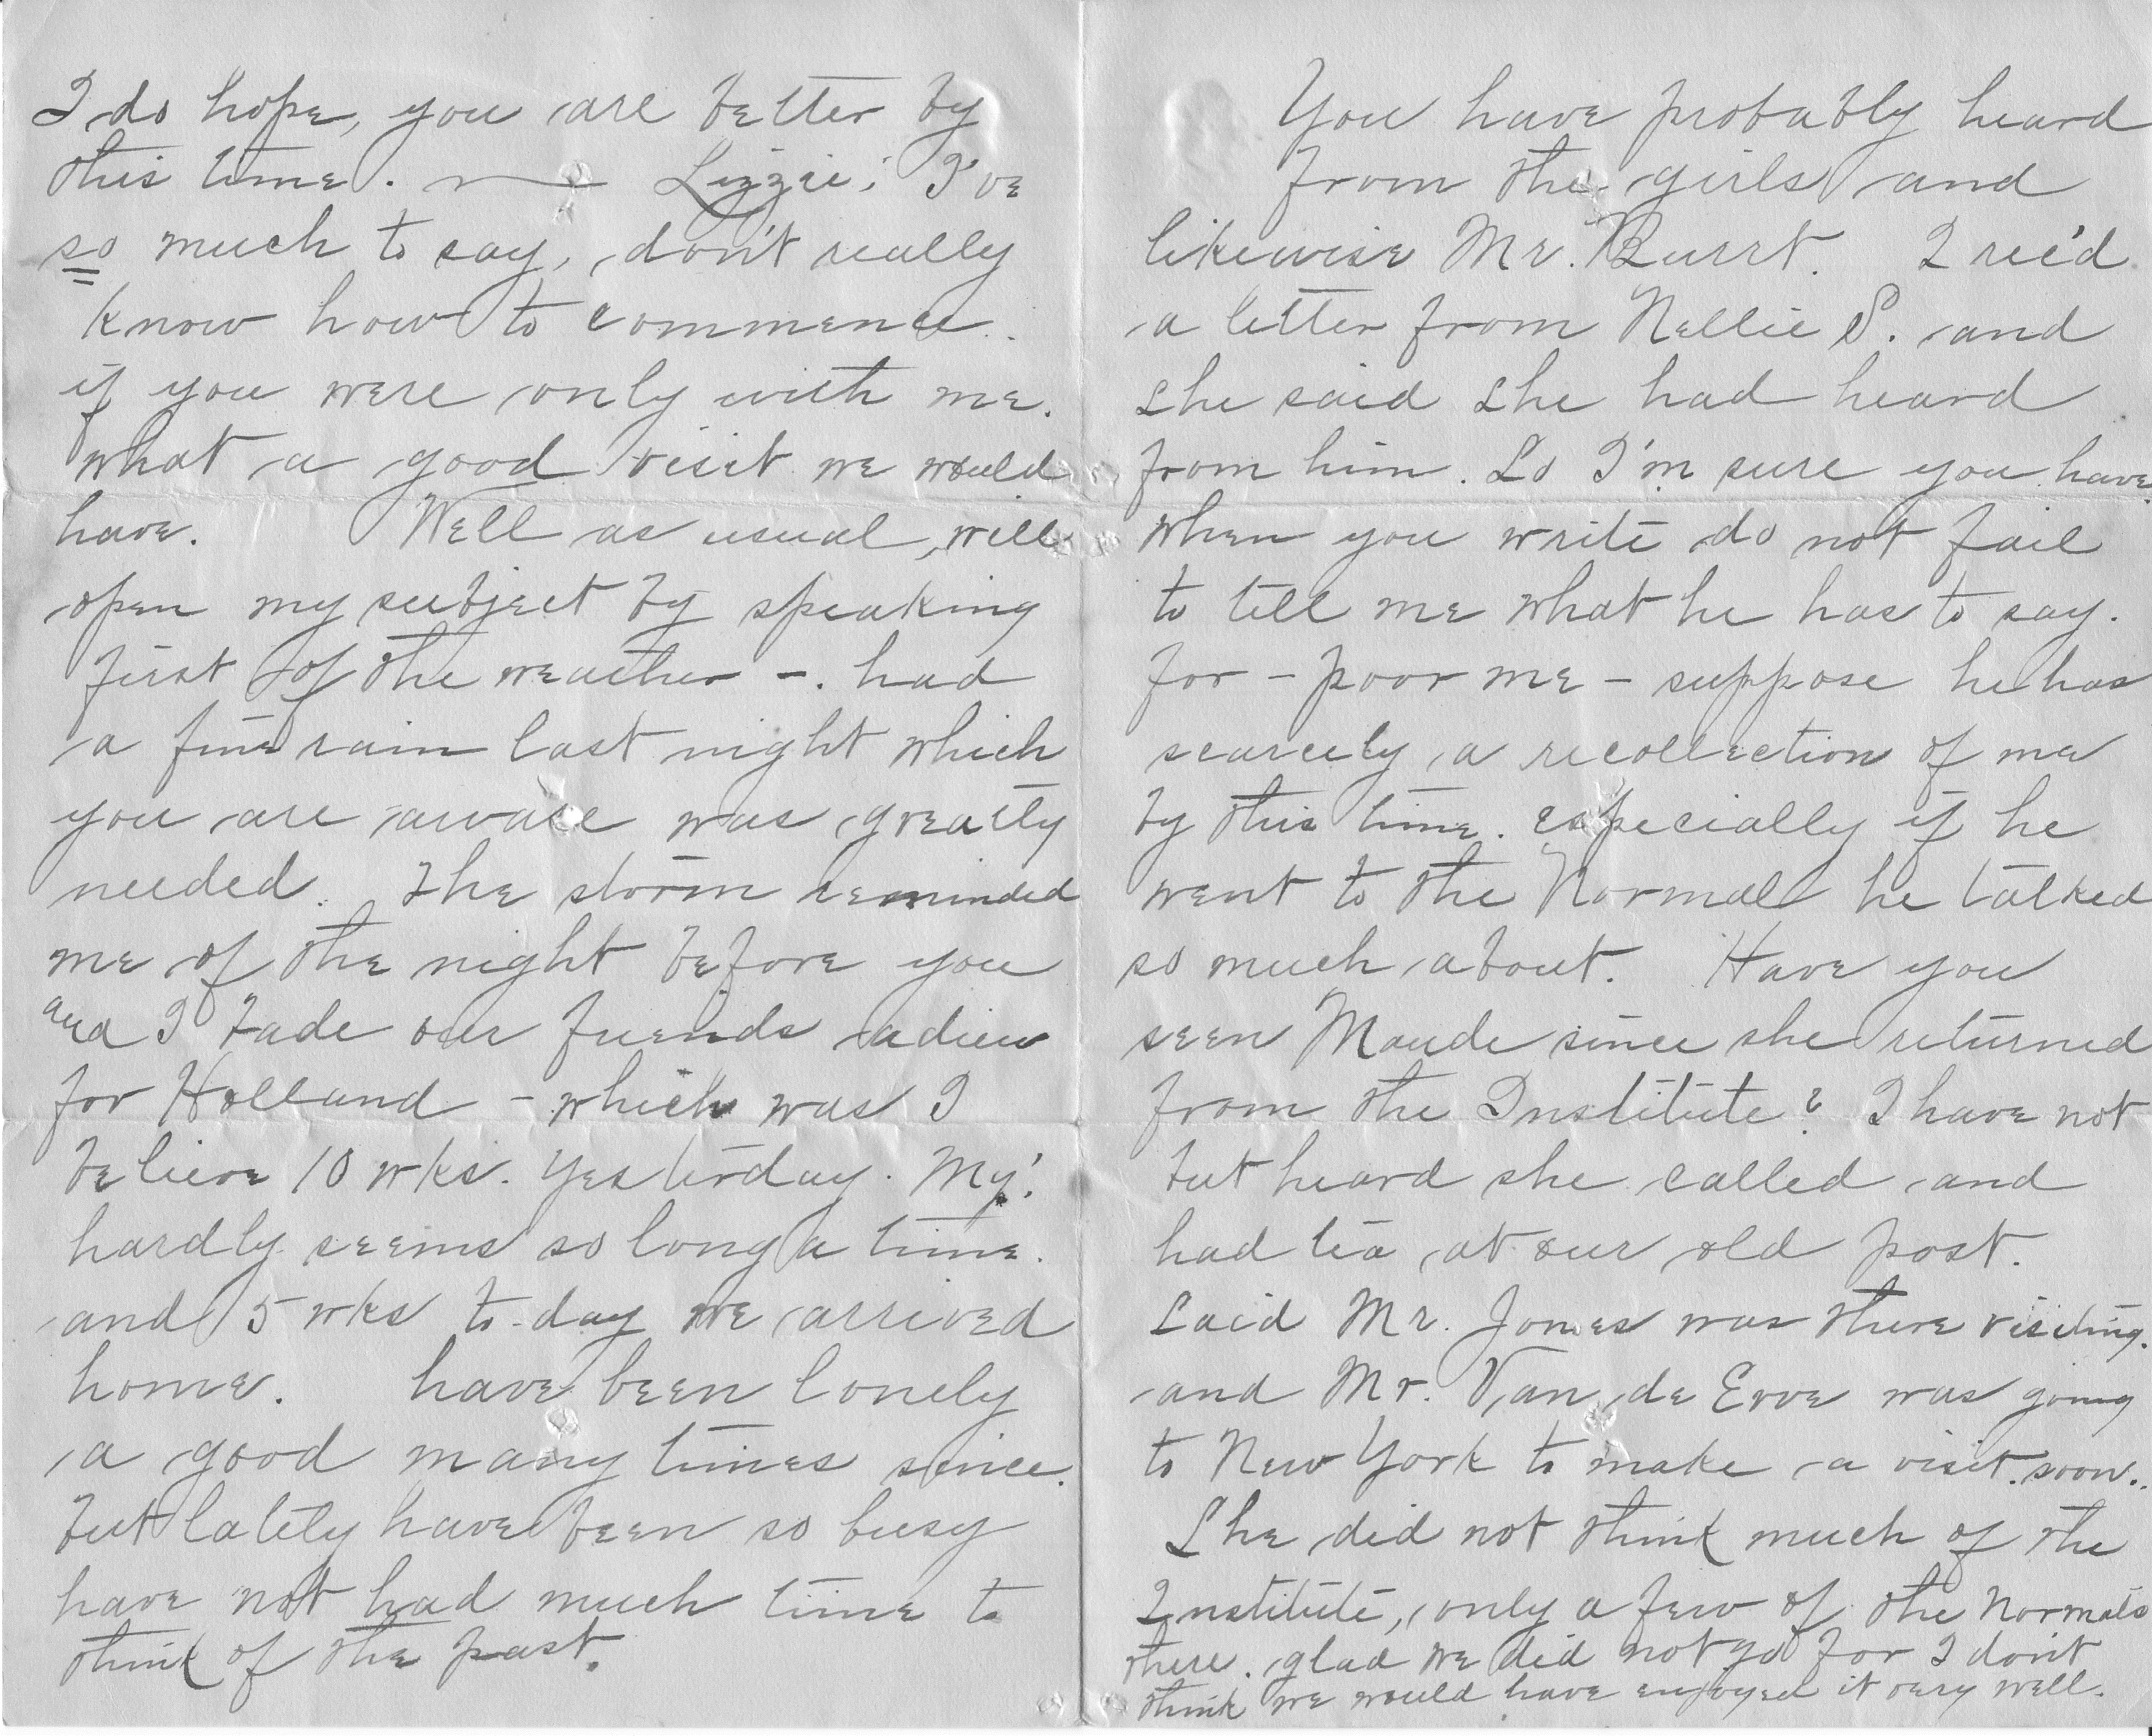 I do hope, you are better by
this time. — Lizzie; I've
so much to say, don't really
know how to commence.
if you were only with me.
what a good visit we would
have. Well as usual, will
open my subject by speaking
first of the weather -. had
a fine rain last night which
you are aware was greatly
needed. The storm reminded
me of the night before you
and I bade our friends adieu
for Holland - which was I
believe 10 wks. yesterday. My!
hardly seems so long a time.
and 5 wks to-day we arrived
home. have been lonely
a good many times since.
but lately have been so busy
have not had much time to
think of the past.
You have probably heard
from the girls and
likewise Mr. Burrt. I rec'd
a letter from Nellie S. and
she said she had heard
from him. So I'm sure you have.
when you write do not fail
to tell me what he has to say.
for - poor me - suppose he has
scarcely a recollection of me
by this time. especially if he
went to the Normal he talked
so much about. Have you
seen Maude since she returned
from the Institute? I have not
but heard she called and
had tea at our old post.
Said Mr. Jones was there visiting.
and Mr. Van de Erve was going
to New York to make a visit soon.
She did not think much of the
Institute, only a few of the Normals
there. glad we did not go for I don't
think we would have enjoyed it very well.